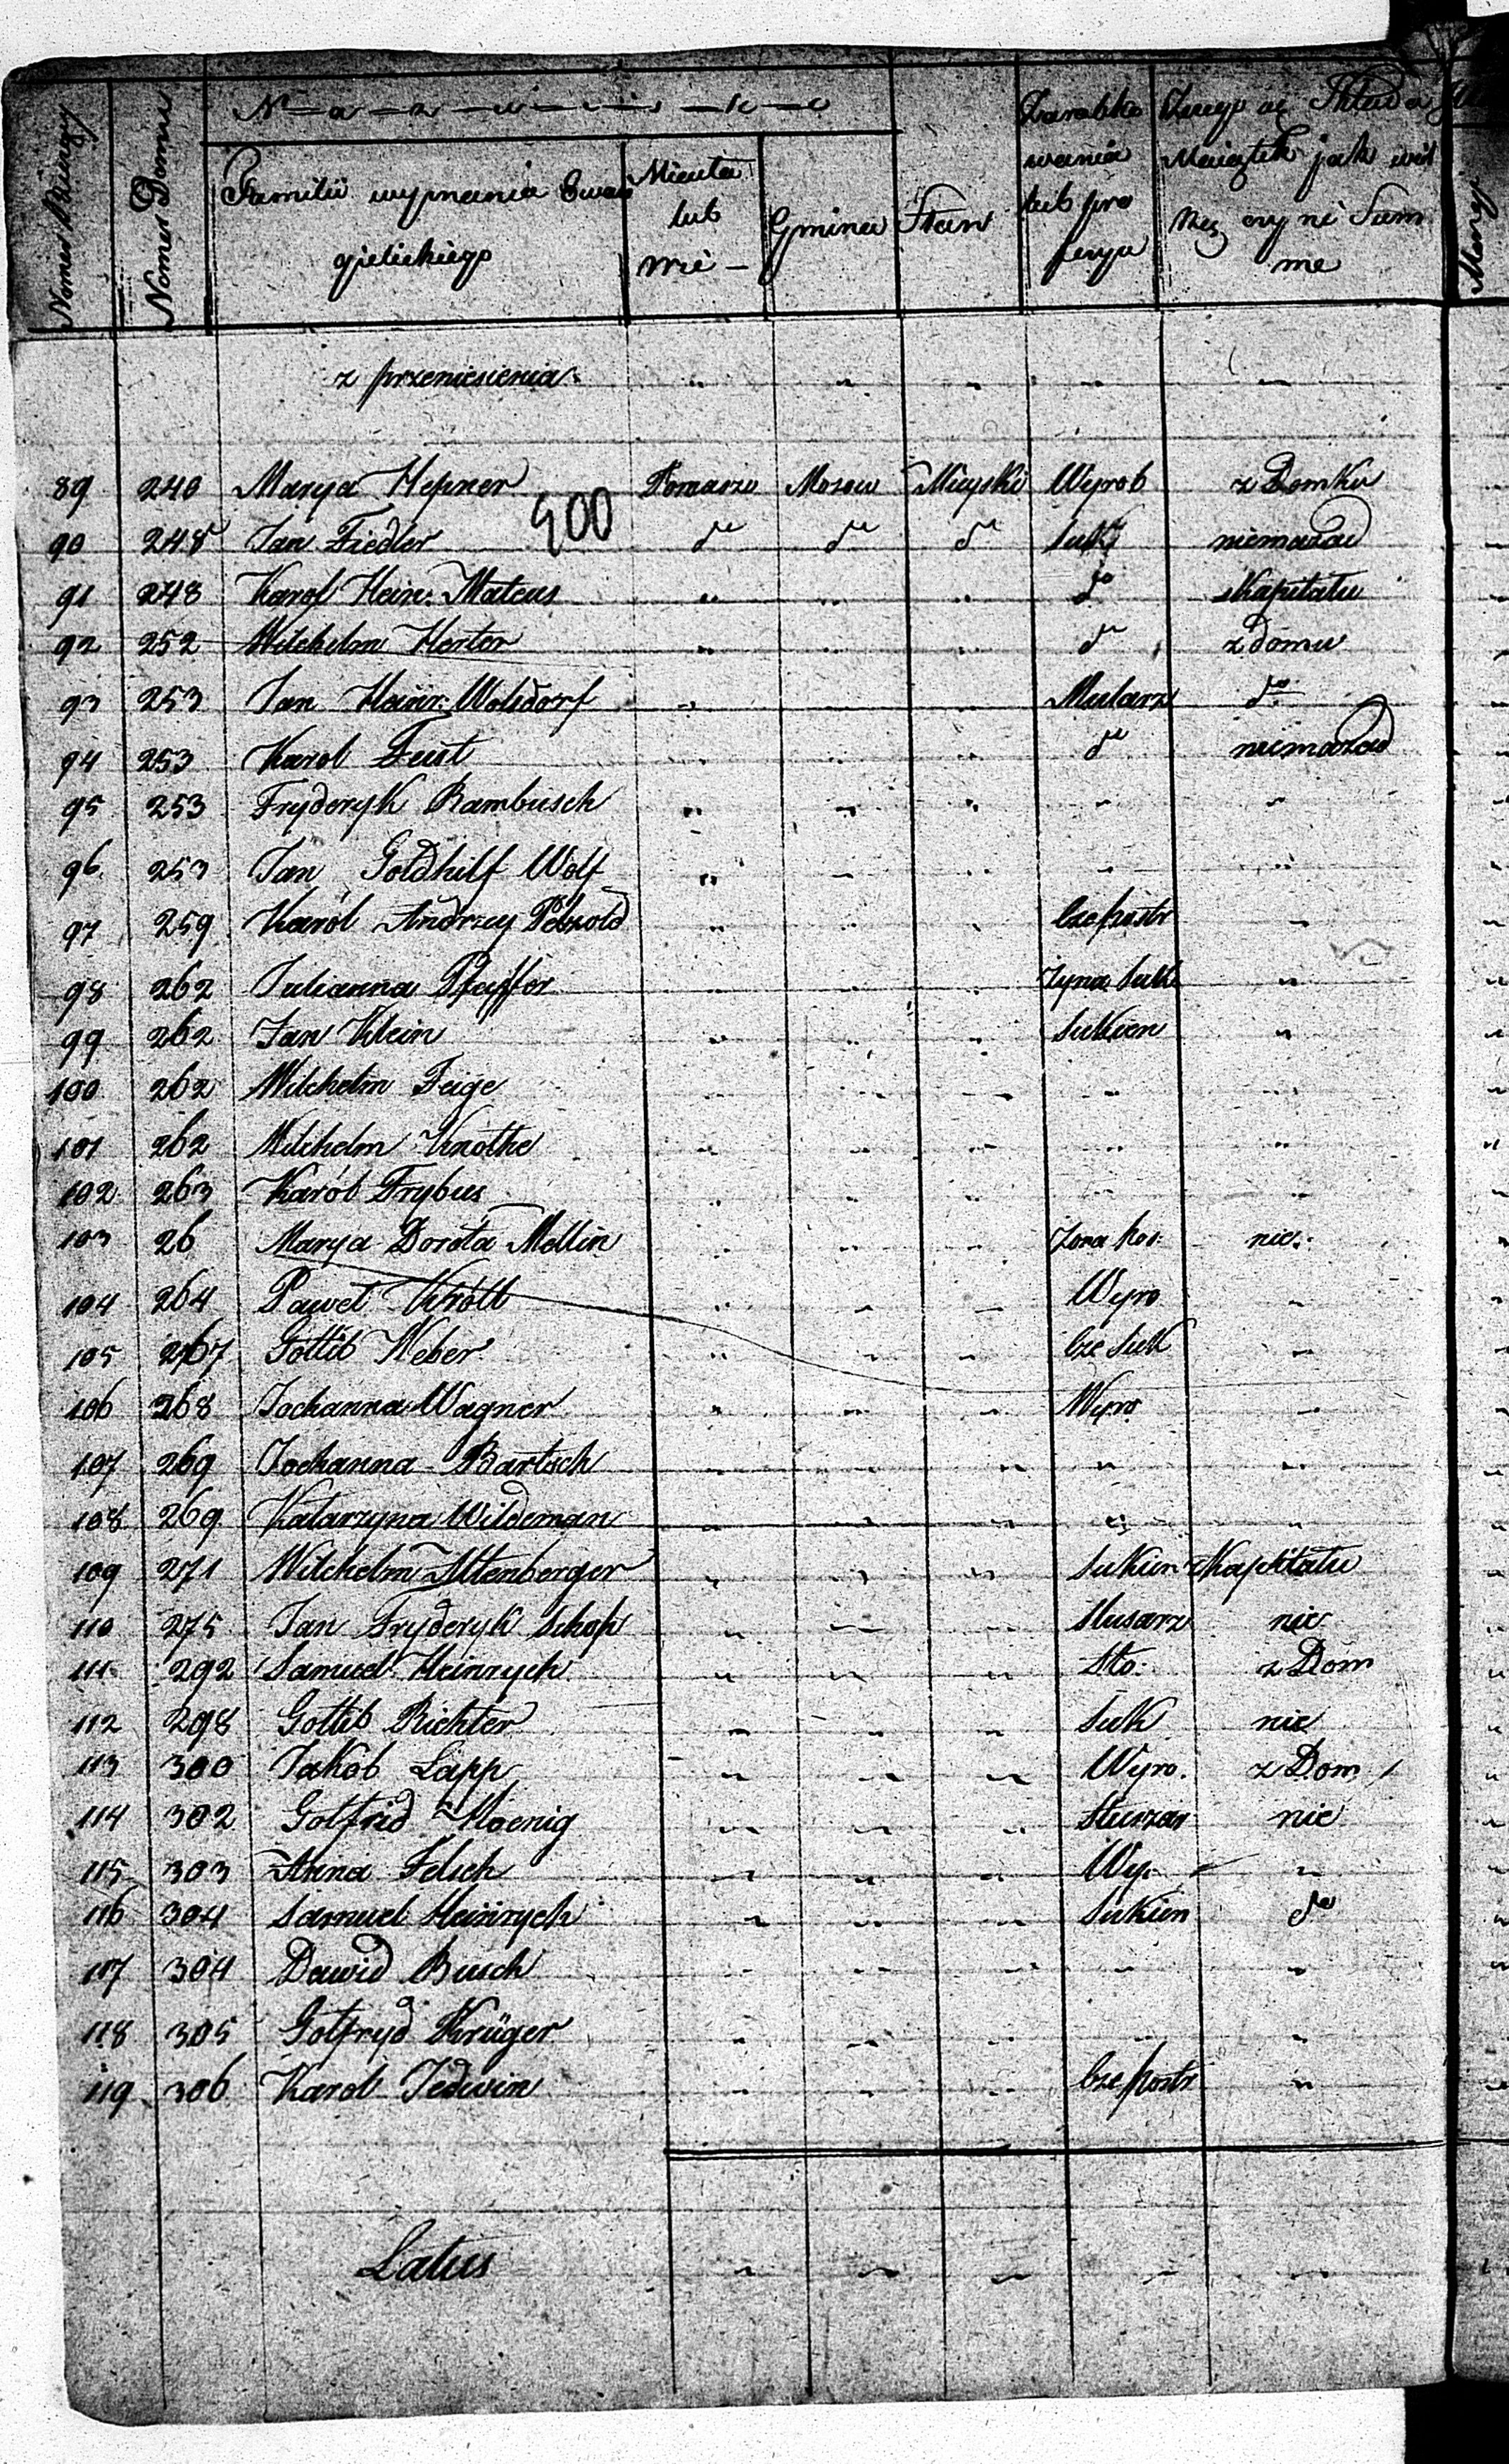 N-a-z-w-i-s-k-o
Nomer Bierzący | Nomer Domu | Familii wyznania Ewan gielickiego | Miasta lub Wsi – | Gmina | Stan | Zarobko wania lub pro fesya | Maiątek jak wiel me
z przeniesienia " " " " "
89 240 Marya Hepner Mieyski Wyrob z Domku
400
90 248 Jan Fiedler do do do Suk niema
91 248 Karol Hein: Mateus " " " do z Kapitału
92 252 Wilchelm Herter " " " do z domu
93 253 Jan Heinr: Wolsdorf " " " Mularz do
94 253 Karol Feist " " " do niema
95 253 Fryderyk Rambusch " " " " "
96 253 Jan Goldhilf Wolf " " " " "
97 259 Karól Andrzey Petzold " " " Cze postr "
98 262 Julianna Pfeiffer " " " Zyna Suk "
99 262 Jan Klein " " " Sukien "
100 262 Wilchelm Feige " " " " "
101 262 Wilchelm Knothe " " " " "
102 263 Karól Frybus " " " " "
103 26 Marya Dorota Mellin " " " Zona Pos: nic:
104 264 Paweł Kröll " " " Wyro "
105 267 Gottlib Weber " " " Cze Suk "
106 268 Jochanna Wagner " " " Wyro "
107 269 Jochanna Bartsch " " " " "
108 269 Katarzyna Wildeman " " " " "
109 271 Wilchelm Altenberger " " " Sukien z Kapitału
110 275 Jan Fryderyk Schop " " " Slusarz nic
111 292 Samuel Heinrych " " " Sto: z Dom
112 298 Gottlib Richter " " " Suk nic
113 300 Jakób Lapp " " " Wyro. z Dom
114 302 Gotfrid Hoenig " " " nic
115 303 Anna Felsch " " " Wyr "
116 304 Samuel Heinrych " " " Sukien do
117 304 Dawid Busch " " " " "
118 305 Gotfryd Krüger " " " " "
119 306 Karol Jedwin " " " Cze postr "
Latus " " " " "